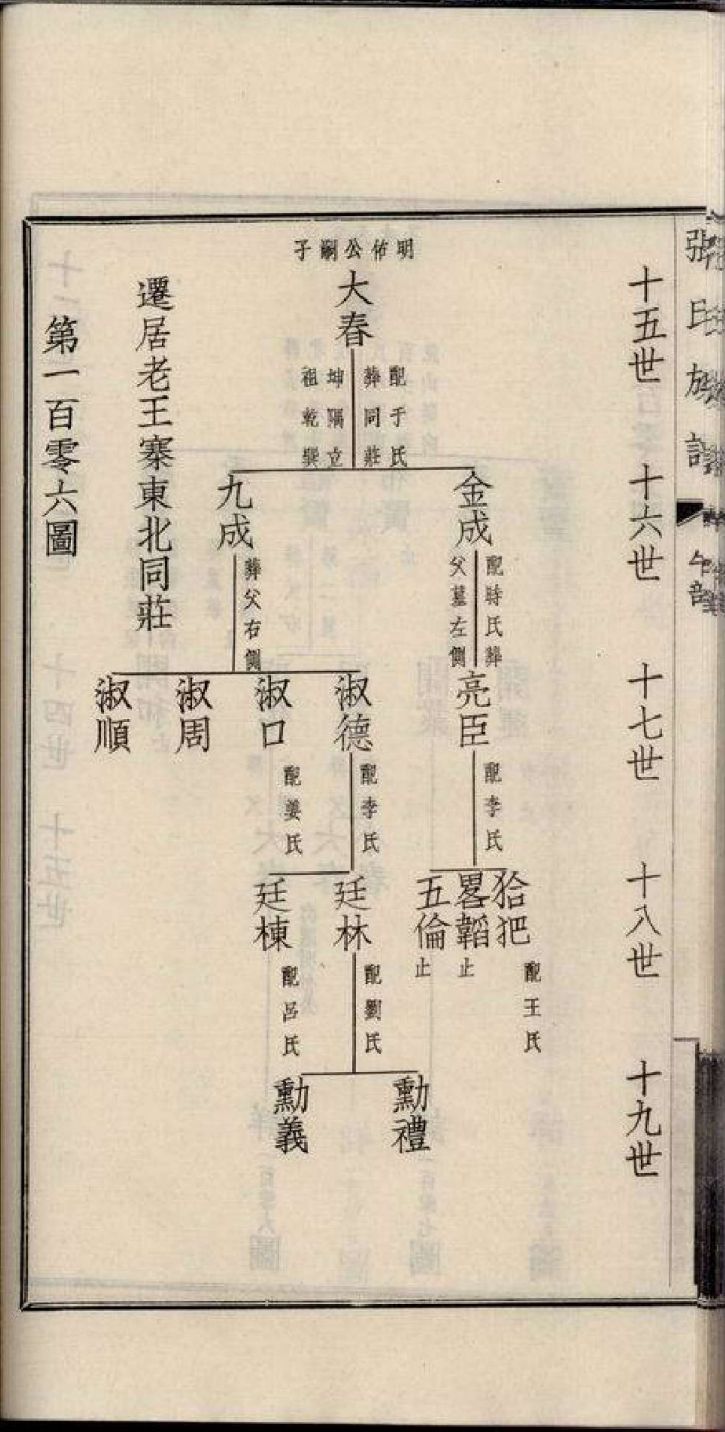 張氏族譜
十五世
十六世
十七世
十八世
十九世
明佑公嗣子
大春
配于氏
葬同莊
坤隅立
祖乾巽
金成
配時氏葬
父墓左側
九成
葬父右側
亮臣
配李氏
淑德
配李氏
淑口
配姜氏
淑周
淑順
配王氏
畧韜
止
五倫
止
廷林
配劉氏
廷棟
配呂氏
勳禮
勳義
遷居老王寨東北同莊
第一百零六圖